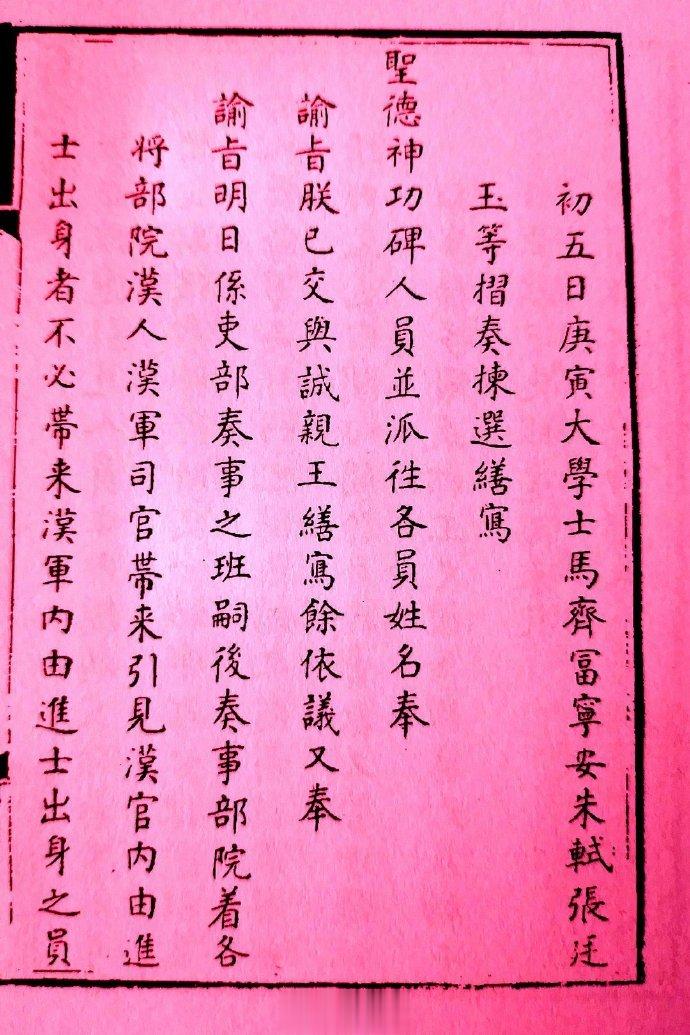 初五日庚寅大學士馬齊冨寧安朱軾張廷
玉等摺奏揀選繕寫
聖德神功碑人員並派徃各員姓名奉
諭旨朕已交與誠親王繕寫餘依議又奉
諭旨明日係吏部奏事之班嗣後奏事部院着各
将部院漢人漢軍司官帶来引見漢官内由進
士出身者不必帶来漢軍内由進士出身之員